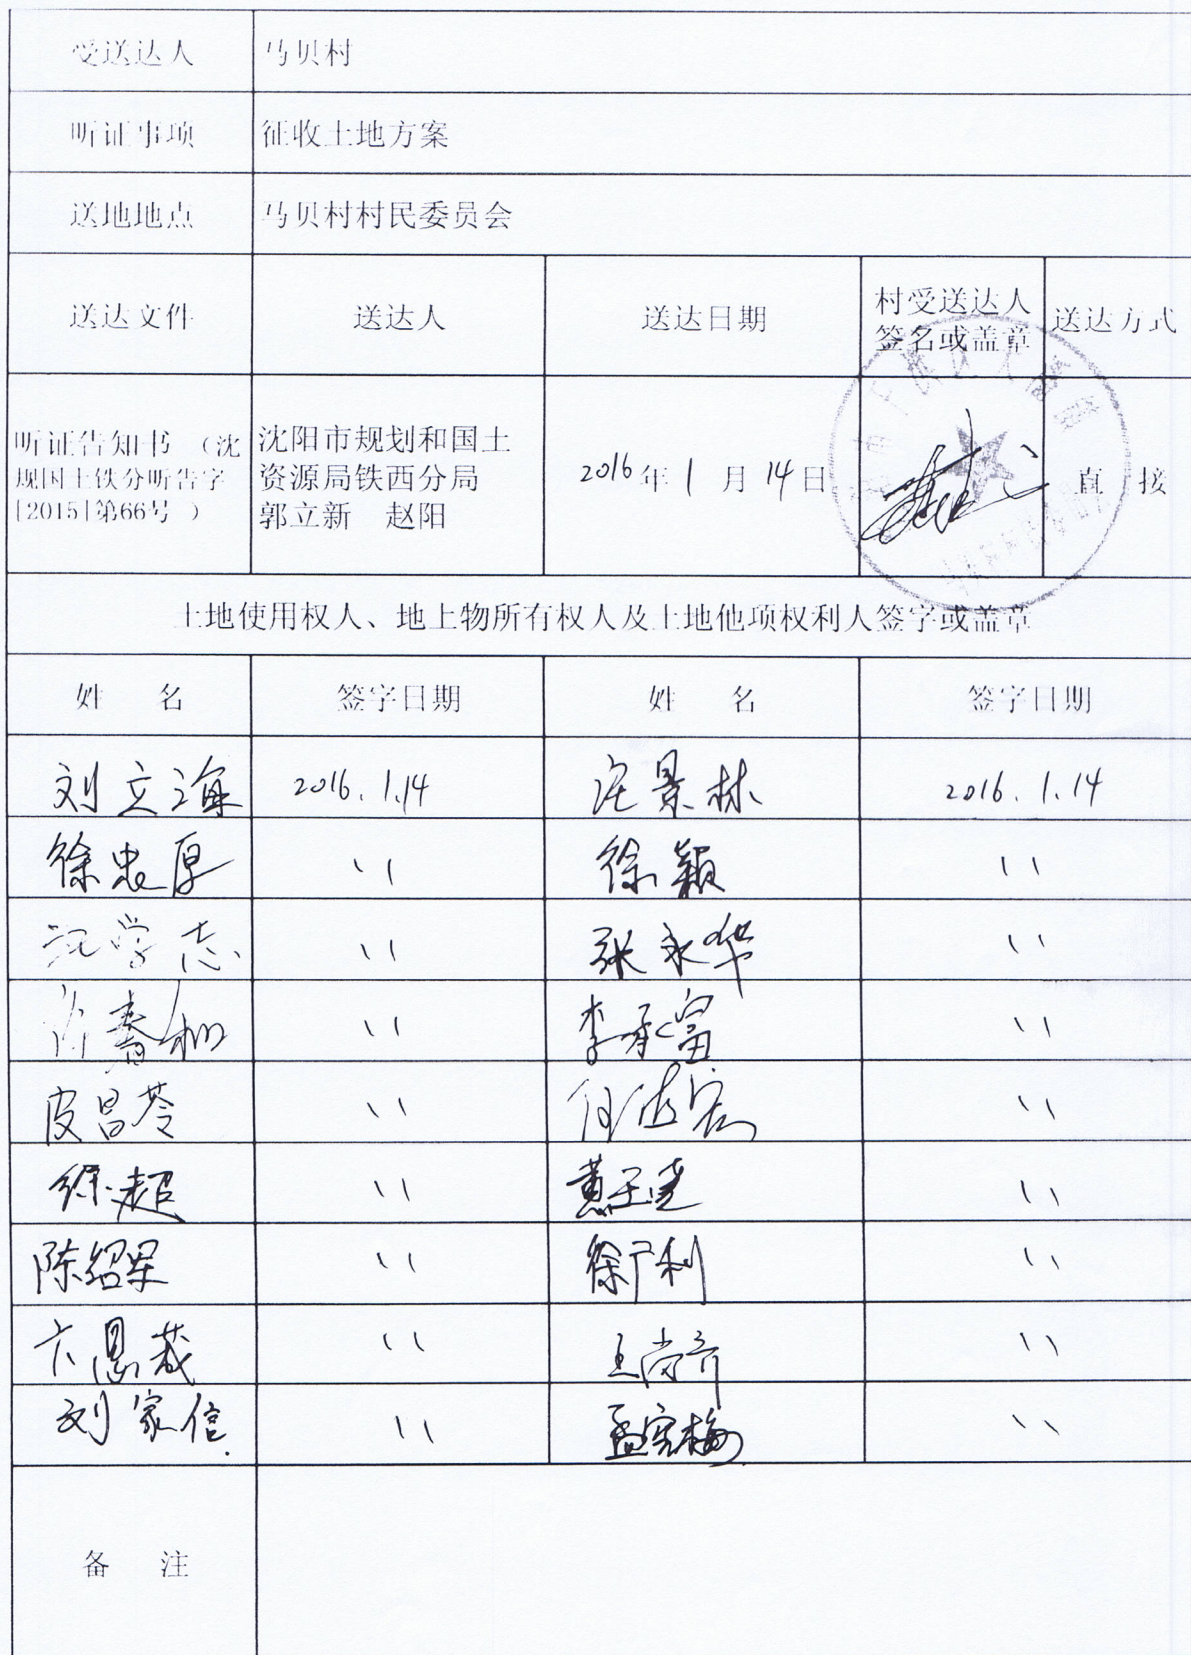 受送达人 马贝村
听证事项 征收土地方案
送地地点 马贝村村民委员会
送达文件 送达人 送达日期 村受送达人 签名或盖章 送达方式
听证告知书（沈
规国土铁分听告字
[2015]第66号 ）
沈阳市规划和国土
资源局铁西分局
郭立新 赵阳
2016年1月14日
直 接
土地使用权人、地上物所有权人及土地他项权利人签字或盖章
姓 名 签字日期 姓 名 签字日期
刘立海 2016.1.14 景林 2016.1.14
徐忠厚 〃 徐颖 〃
沈学志 〃 张永华 〃
肖春柳 〃 李承富 〃
皮昌苓 〃 何 〃
徐超 〃 黄 〃
陈绍军 〃 徐广利 〃
卞恩 〃 王尚 〃
刘家信 〃 孟宪梅 〃
备 注